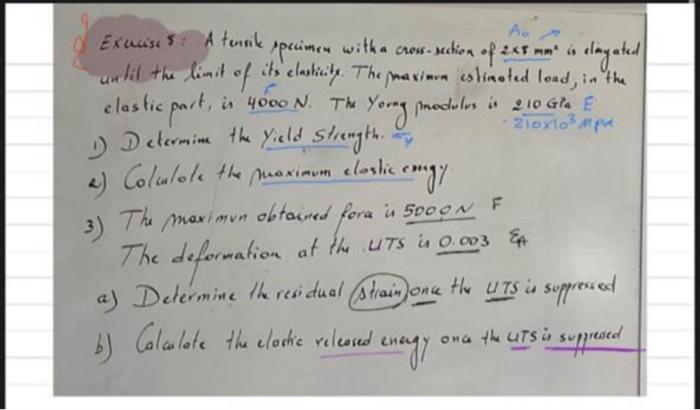 A₀
Exercise 8: A tensile specimen with a cross-section of 2x8 mm² is elongated
until the limit of its elasticity. The maximum estimated load, in the
F
elastic part, is 4000 N. The Young modulus is 210 GPa E
210x10³ Mpa
1) Determine the Yield Strength. σy
2) Calculate the maximum elastic energy.
3) The maximum obtained force is 5000 N F
The deformation at the UTS is 0.003
a) Determine the residual strain once the UTS is suppressed
b) Calculate the elastic released energy once the UTS is suppressed